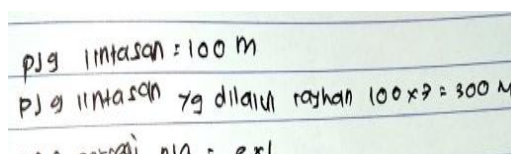 pjg lintasan = 100 m
pjg lintasan yg dilalui rayhan 100 x 3 = 300 M